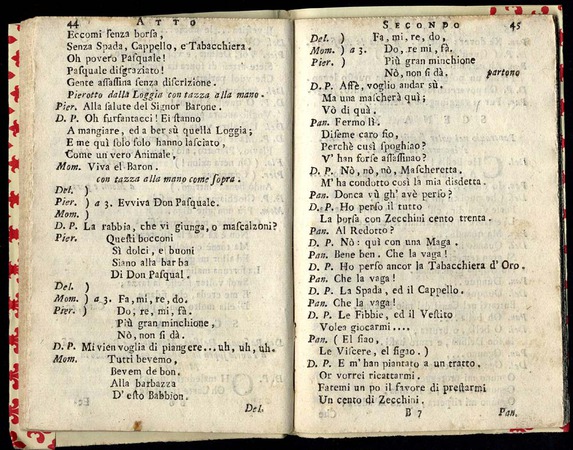 44 ATTO
Eccomi senza borsa,
Senza Spada, Cappello, e Tabacchiera.
Oh povero Pasquale!
Pasquale disgraziato!
Gente assassina senza discrizione.
Pierotto dalla Loggia con tazza alla mano.
Pier. Alla salute del Signor Barone.
D. P. Oh furfantacci! Ei stanno
A mangiare, ed a ber sù quella Loggia;
E me quì solo solo hanno lasciato,
Come un vero Animale,
Mom. Viva el Baron.
con tazza alla mano come sopra.
Del. )
Pier. ) a 3. Evviva Don Pasquale.
Mom. )
D. P. La rabbia, che vi giunga, o mascalzoni?
Pier. Questi bocconi
Sì dolci, e buoni
Siano alla barba
Di Don Pasqual.
Del. )
Mom. ) a 3. Fa, mi, re, do.
Pier. ) Do, re, mi, fà.
Più gran minchione,
Nò, non si dà.
D. P. Mi vien voglia di piangere...uh, uh, uh.
Mom. Tutti bevemo,
Bevem de bon.
Alla barbazza
D' esto Babbion.
Del.
SECONDO 45
Del. ) Fa, mi, re, do,
Mom. ) a 3. Do, re mi, fà.
Pier. ) Più gran minchione
Nò, non si dà. partono
D. P. Affè, voglio andar sù.
Ma una mascherà quì;
Vò di quà.
Pan. Fermo lì.
Diseme caro fio,
Perchè cusì spoghiao?
V' han forse assassinao?
D. P. Nò, nò, nò, Mascheretta.
M'ha condotto così la mia disdetta.
Pan. Donca vù gh' avè perso?
D. P. Ho perso il tutto
La borsa con Zecchini cento trenta.
Pan. Al Redotto?
D. P. Nò: quì con una Maga.
Pan. Bene ben. Che la vaga!
D. P. Ho perso ancor la Tabacchiera d' Oro.
Pan. Che la vaga!
D. P. La Spada, ed il Cappello.
Pan. Che la vaga!
D. P. Le Fibbie, ed il Vestito
Volea giocarmi....
Pan. ( El fiao,
Le Viscere, el figao. )
D. P. E m' han piantato a un tratto.
Or vorrei ricattarmi.
Faremi un po il favore di prestarmi
Un cento di Zecchini.
B 7 Pan.